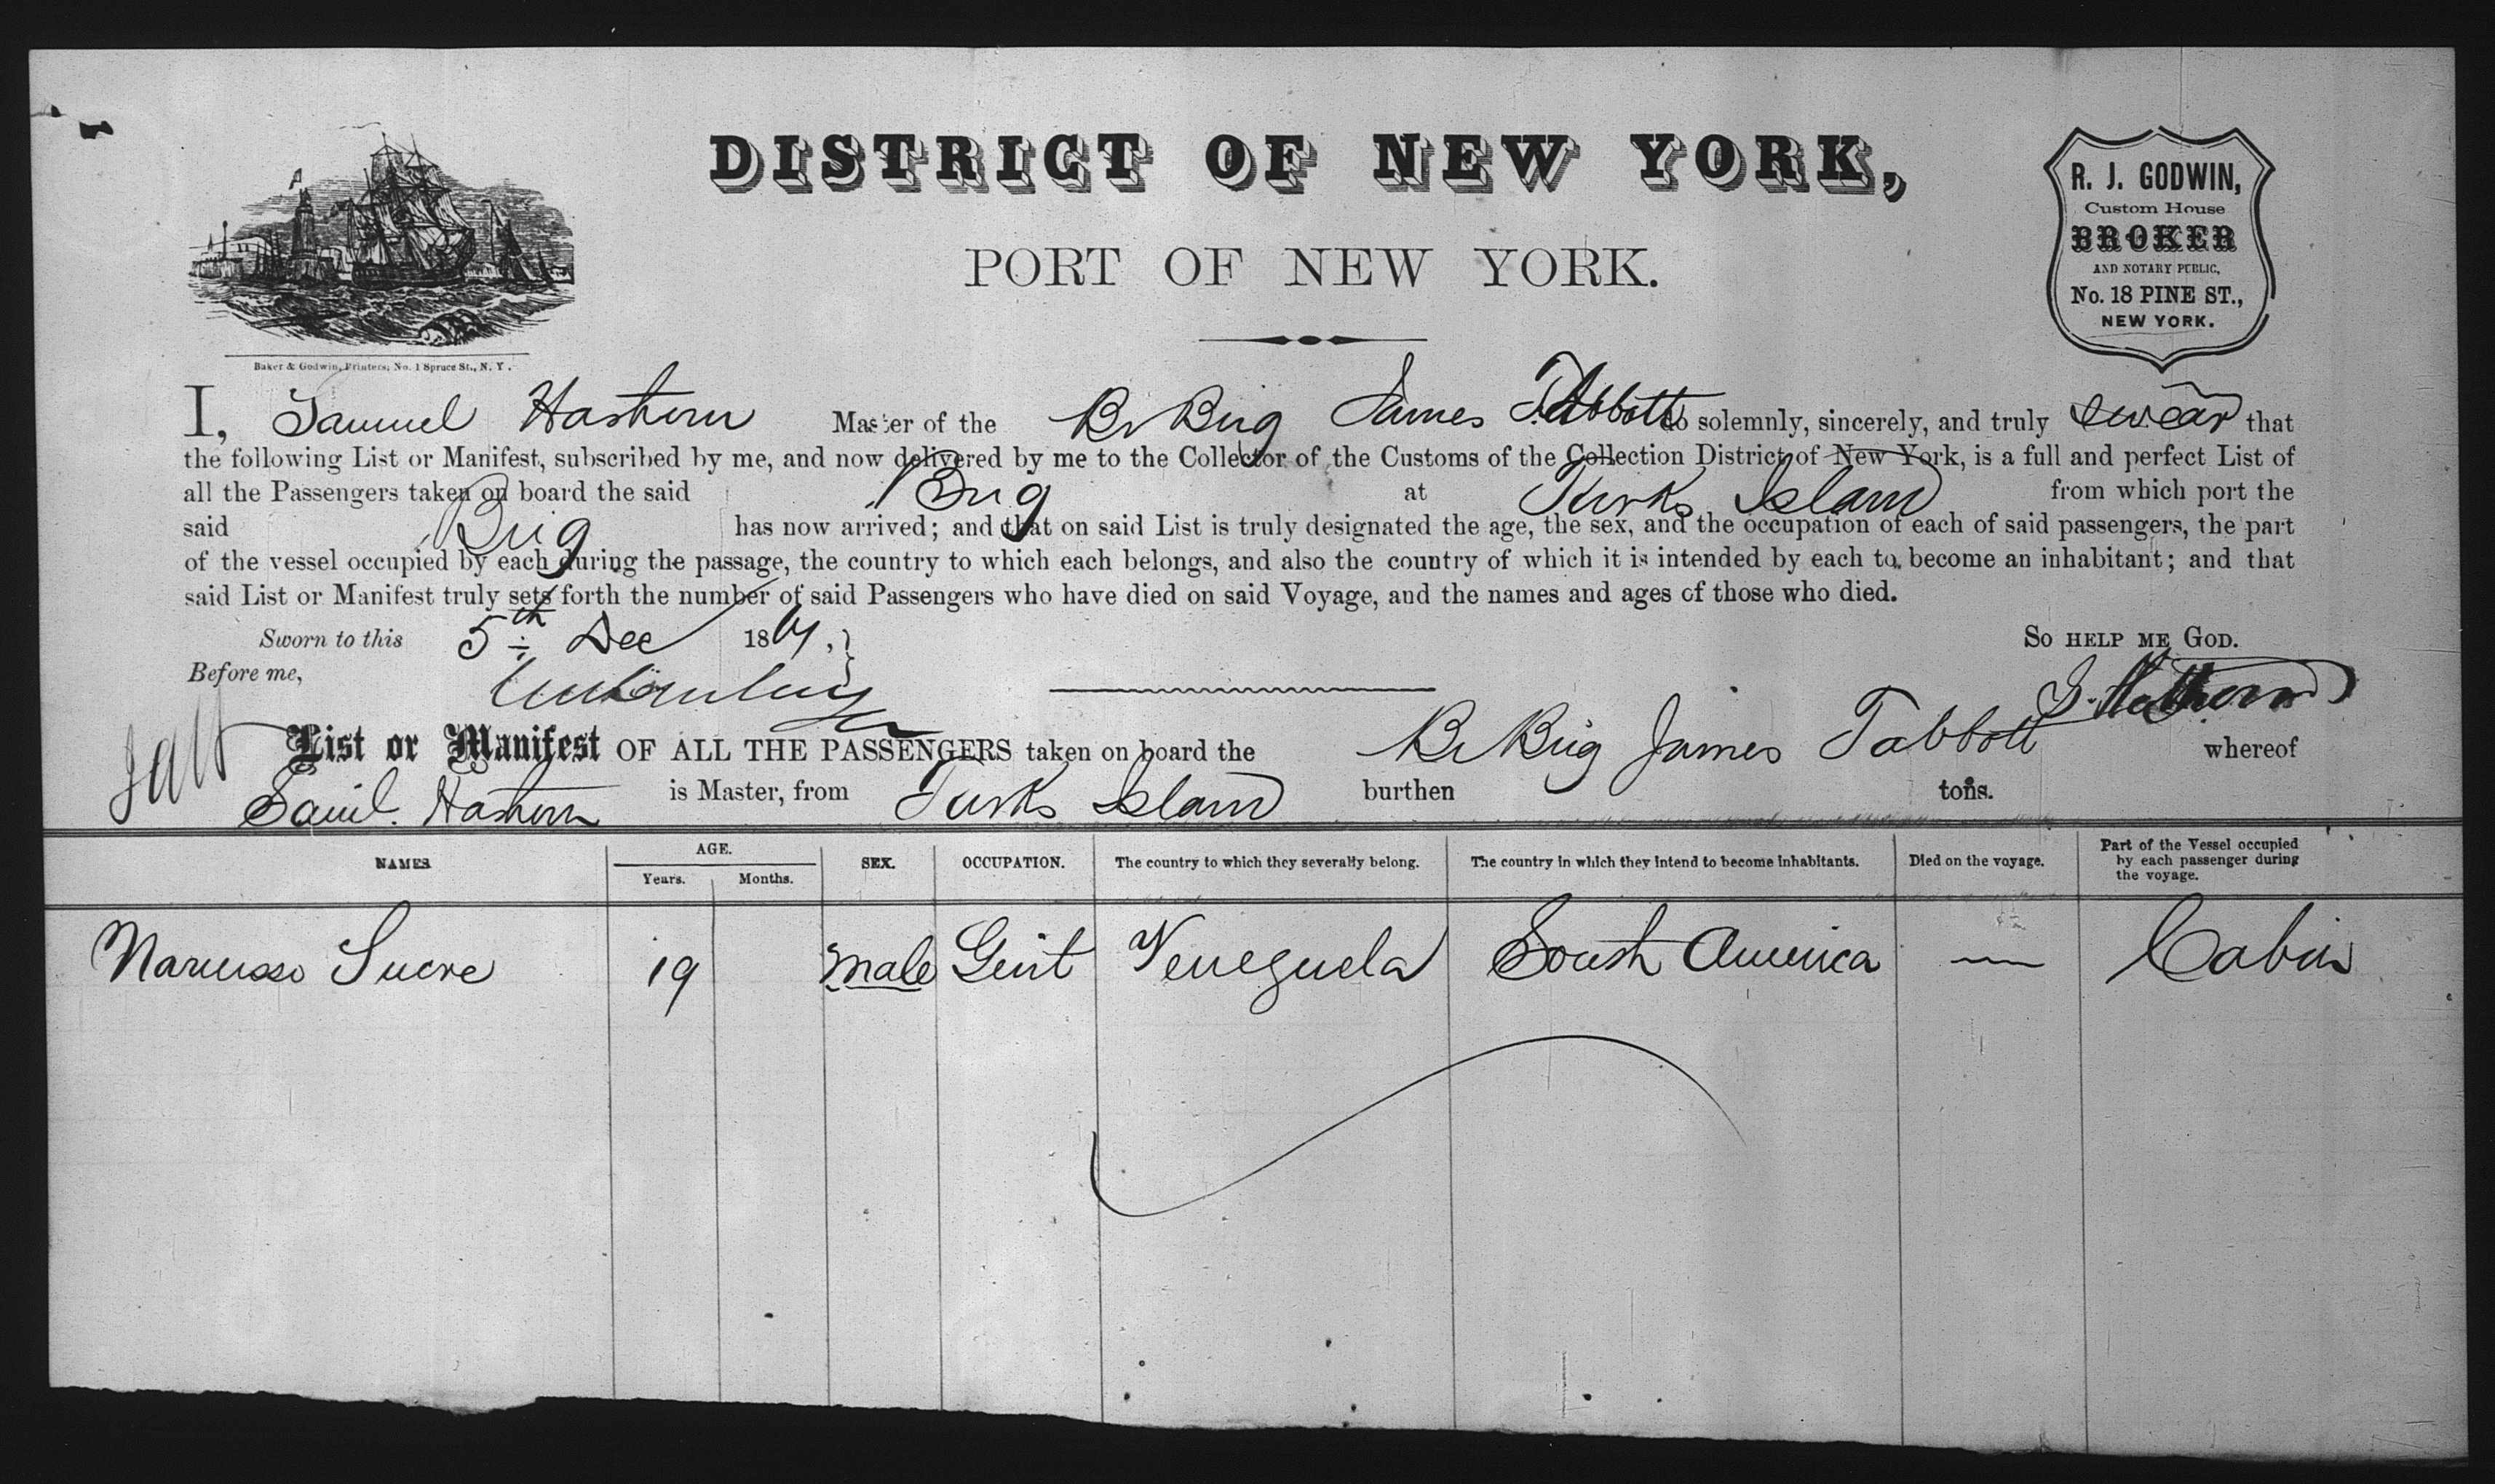 DISTRICT OF NEW YORK,
PORT OF NEW YORK.
R. J. GODWIN,
Custom House
BROKER
AND NOTARY PUBLIC,
No. 18 PINE ST.,
NEW YORK.
Baker & Godwin, Printers, No. 1 Spruce St., N. Y.
I, Samuel Master of the Br Brig James Tabbott do solemnly, sincerely, and truly swear that
the following List or Manifest, subscribed by me, and now delivered by me to the Collector of the Customs of the Collection District of New York, is a full and perfect List of
all the Passengers taken on board the said Brig at Turks Island from which port the
said Brig has now arrived; and that on said List is truly designated the age, the sex, and the occupation of each of said passengers, the part
of the vessel occupied by each during the passage, the country to which each belongs, and also the country of which it is intended by each to become an inhabitant; and that
said List or Manifest truly sets forth the number of said Passengers who have died on said Voyage, and the names and ages of those who died.
Sworn to this 5th Dec 186 So help me God.
Before me,
List or Manifest OF ALL THE PASSENGERS taken on board the Br Brig James Tabbott whereof
Saml. is Master, from Turks Island burthen tons.
NAMES AGE. Years. Months. SEX. OCCUPATION. The country to which they severally belong. The country in which they intend to become inhabitants. Died on the voyage. Part of the Vessel occupied by each passenger during the voyage.
Narcisso Sucre 19 Male Gent Venezuela South America — Cabin